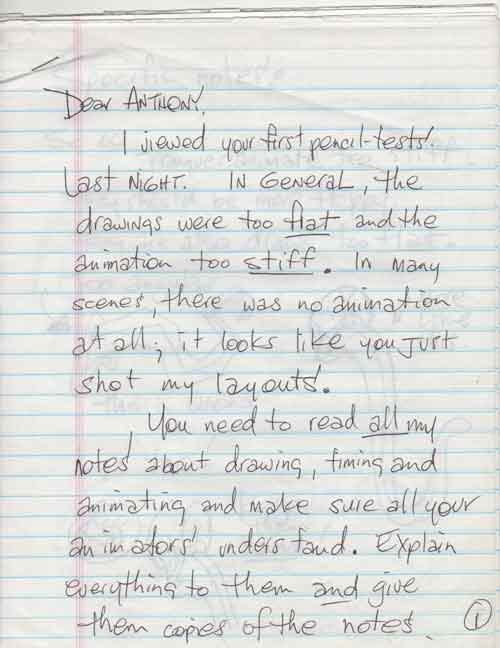 Dear ANTHONY,
I viewed your first pencil-tests
Last NIGHT. IN GENERAL, the
drawings were too flat and the
animation too stiff. IN MANY
scenes, there was no animation
at all; it looks like you Just
shot my layouts.
You need to read all my
notes about drawing, timing and
animating and make sure all your
animators understand. Explain
everything to them and give
them copies of the notes.
1